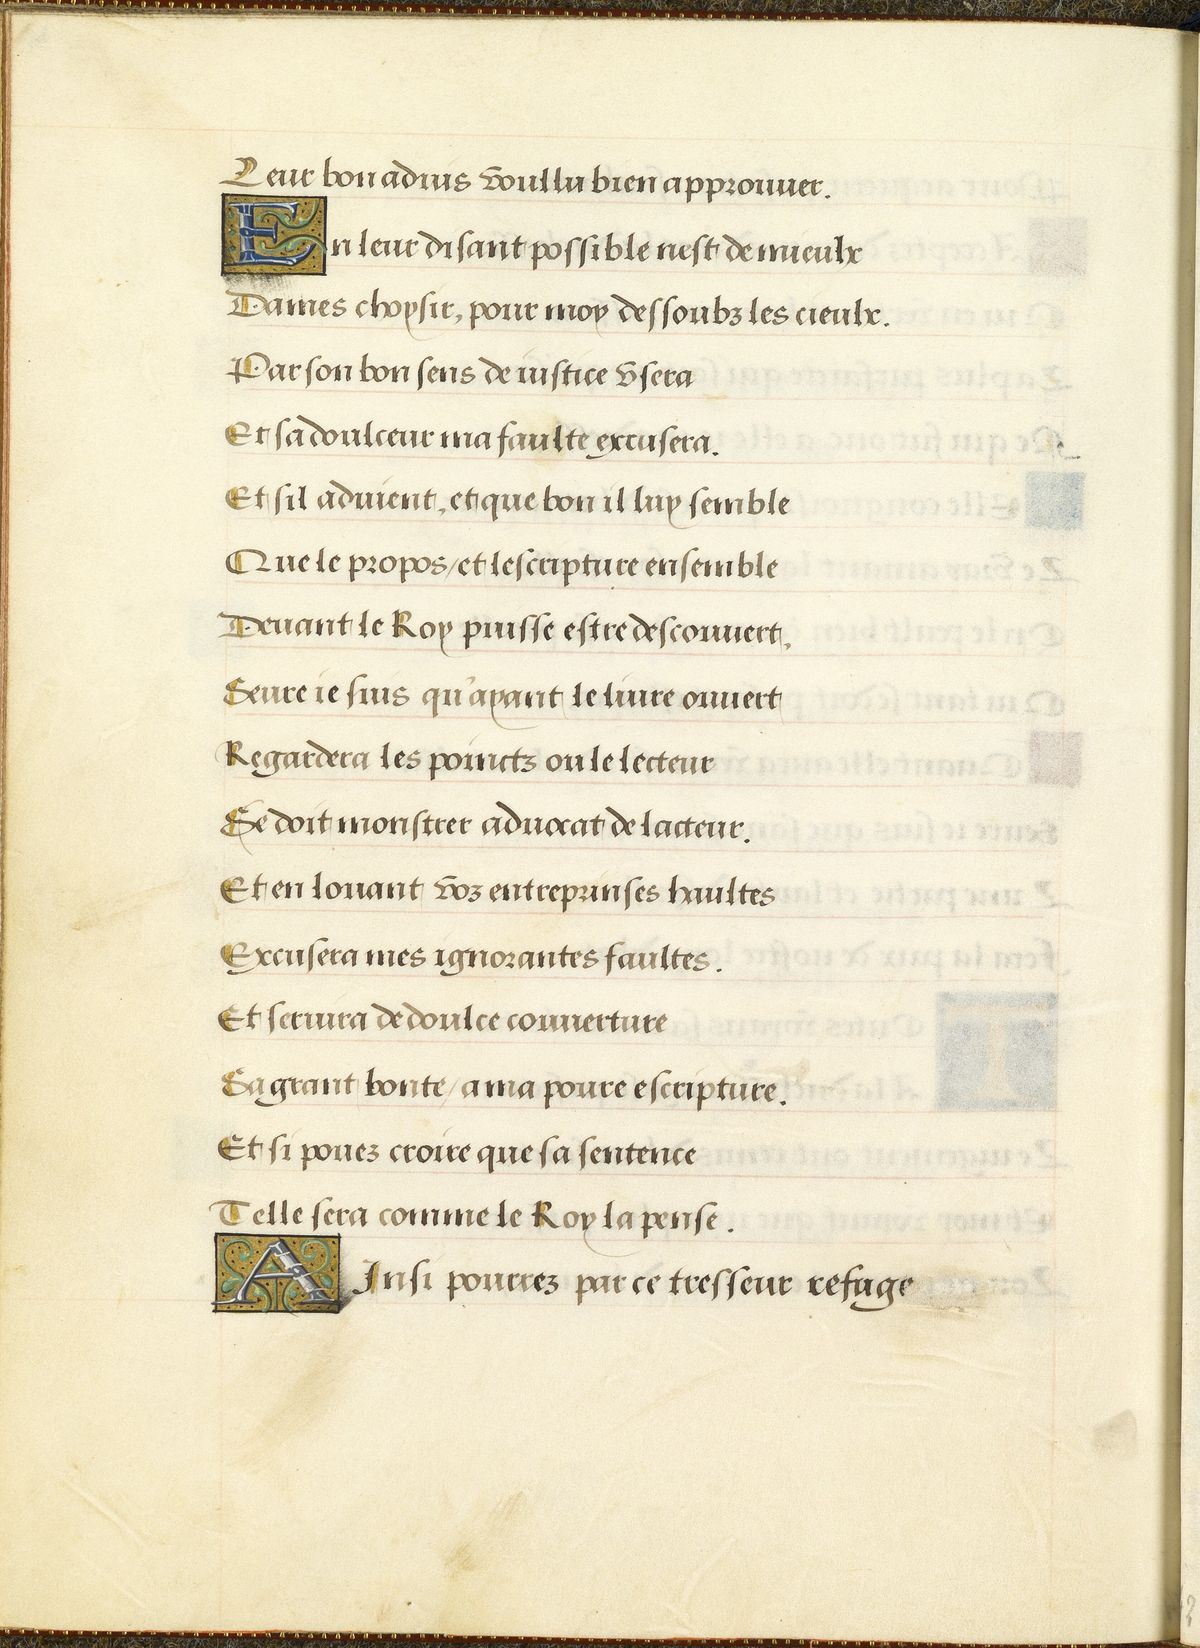 Leur bon aduis voullu bien approuuer.
En leur disant possible nest de mieulx
Dames choysir, pour moy dessoubz les cieulx.
Par son bon sens de iustice vsera
Et sa doulceur ma faulte excusera.
Et sil aduient, et que bon il luy semble
Que le propos/et lescripture ensemble
Deuant le Roy puisse estre descouuert,
Seure ie suis qu'ayant le liure ouuert
Regardera les poinctz ou le lecteur
Se doit monstrer aduocat de lacteur.
Et en louant voz entreprinses haultes
Excusera mes ignorantes faultes.
Et seruira de doulce couuerture
Sa grant bonte/a ma poure escripture.
Et si pouez croire que sa sentence
Telle sera comme le Roy la pense.
AInsi pourrez par ce tresseur refuge